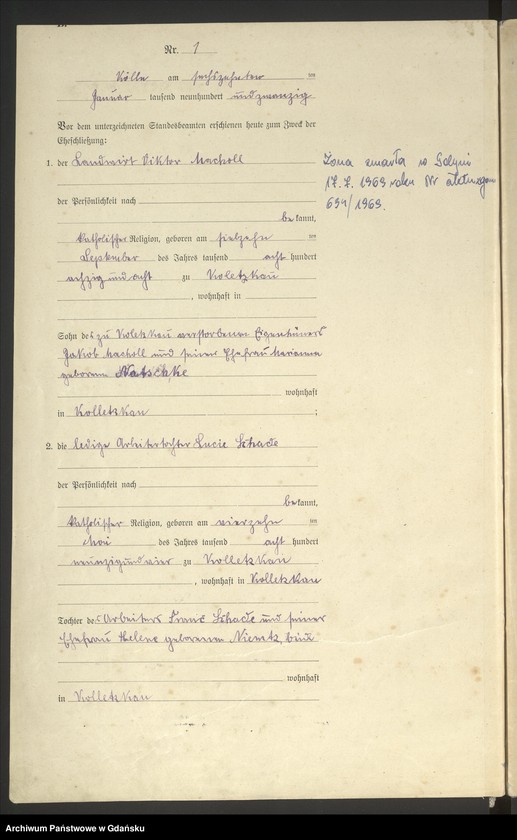 Nr. 1
Kölln am sechszehnten ten
Januar tausend neunhundert undzwanzig
Vor dem unterzeichneten Standesbeamten erschienen heute zum Zweck der
Eheschließung:
1. der Landwirt Viktor Macholl
der Persönlichkeit nach
bekannt,
katholischer Religion, geboren am siebzehn ten
September des Jahres tausend acht hundert
achzig und acht zu Koletzkau
, wohnhaft in
Sohn des zu Koletzkau verstorbenen Eigentümers
Jakob Macholl und seiner Ehefrau Marianna
geborene Natschke
wohnhaft
in Kolletzkau ;
2. die ledige Arbeitertochter Lucie
der Persönlichkeit nach
bekannt,
katholischer Religion, geboren am vierzehn ten
Mai des Jahres tausend acht hundert
neunzigundvier zu Kolletzkau
, wohnhaft in Kolletzkau
Tochter des Arbeiters Franz und seiner
Ehefrau Helene geborenen beide
wohnhaft
in Kolletzkau
Żona zmarła w Gdyni
17.7.1969 roku Nr aktu zgonu
694/1969.
Archiwum Państwowe w Gdańsku